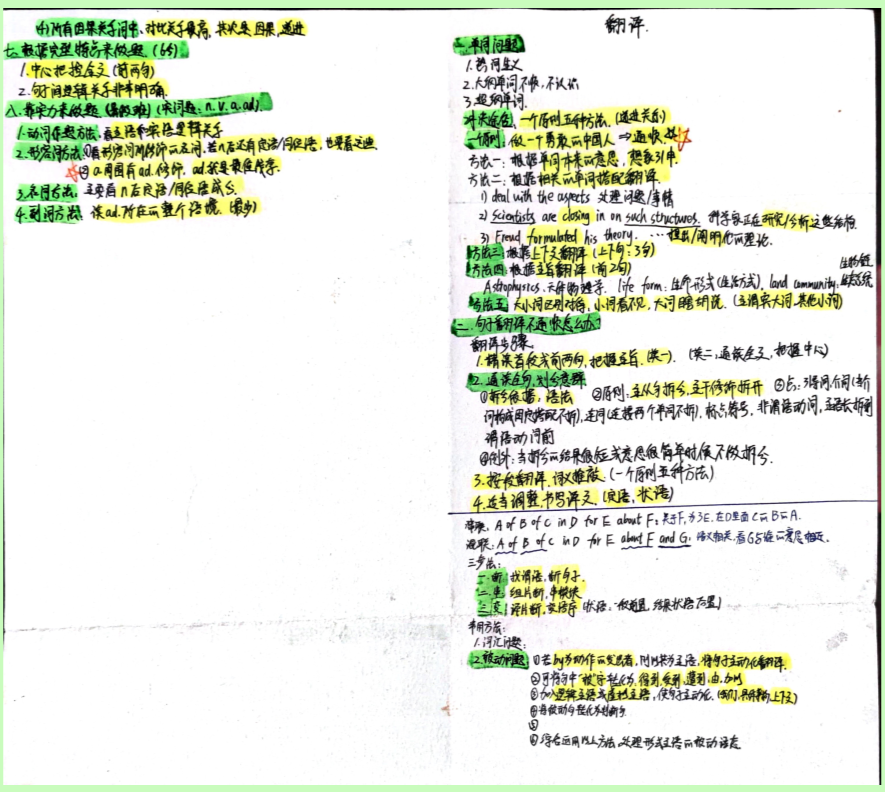 (4)所有因果关系词中、对比关系最高,其次是因果,递进
1.中心把控全文(前两句)
2.句子间逻辑关系非常明确.
1.动词保题方法:看主语和宾语逻辑关系
2.形容词方法:①看形容词所修饰的名词.若n后还有定语/同位语,也要看这些
②a.周围有ad.修饰,ad.就是最佳线索.
3.名词方法:主要看n后定语/同位语成分.
4.副词方法:读ad.所在的整个语境.(最少)
翻译.
一.单词问题
1.熟词生义
2.大纲单词不够,不认识
3.超纲单词.
一个原则五种方法.(递进关系)
一个原则:做一个勇敢的中国人⇒通快.
方法一:根据单词本来的意思,想象引申.
方法二:根据相关的单词搭配翻译.
1) deal with the aspects 处理问题/事情
2) scientists are closing in on such structures. 科学家正在研究/分析这些结构.
3) Freud formulated his theory. …提出/阐明他的理论.
方法三:根据上下文翻译(上下句:3句)
方法四:根据主旨翻译(前2句)
Astrophysics.天体物理学. life form:生命形式(生活方式). land community:生物链 生态系统
方法五:大小词区别对待,小词看不见,大词瞎胡说.(主谓宾大词.其他小词)
二.句子翻译不通快怎么办.
翻译步骤
1.精读首段或前两句,把握主旨.(英一). (英二,通读全文,把握中心)
2.通读全句,划分意群
①拆分依据:语法 ②原则:主从句拆分,主干修饰拆开 ③点:引导词介词(若介
词构成固定搭配不拆),连词(连接两个单词不拆),标点符号,非谓语动词,主语长拆到
谓语动词前
④例外:当拆分的结果很短或意思很简单时候不做拆分.
3.按段翻译,词义推敲.(一个原则五种方法)
4.适当调整,书写译文.(定语,状语)
A of B of C in D for E about F:关于F,为了E,在D里面C的B的A.
混联:A of B of C in D for E about F and G.
三步法:
一.断 找谓语,断句子.
三.变:译片断,变语序(状语:一般前置,结果状语后置)
常用方法:
1.词汇问题:
2.被动问题 ①若by为动作的发出者,则以其为主语,将句子主动化翻译.
②可将句中"被"字转化为:得到,受到,遭到,由,加以
③加入逻辑主语或虚拟主语,使句子主动化.
⑤
⑥综合运用以上方法,处理形式主语的被动语态